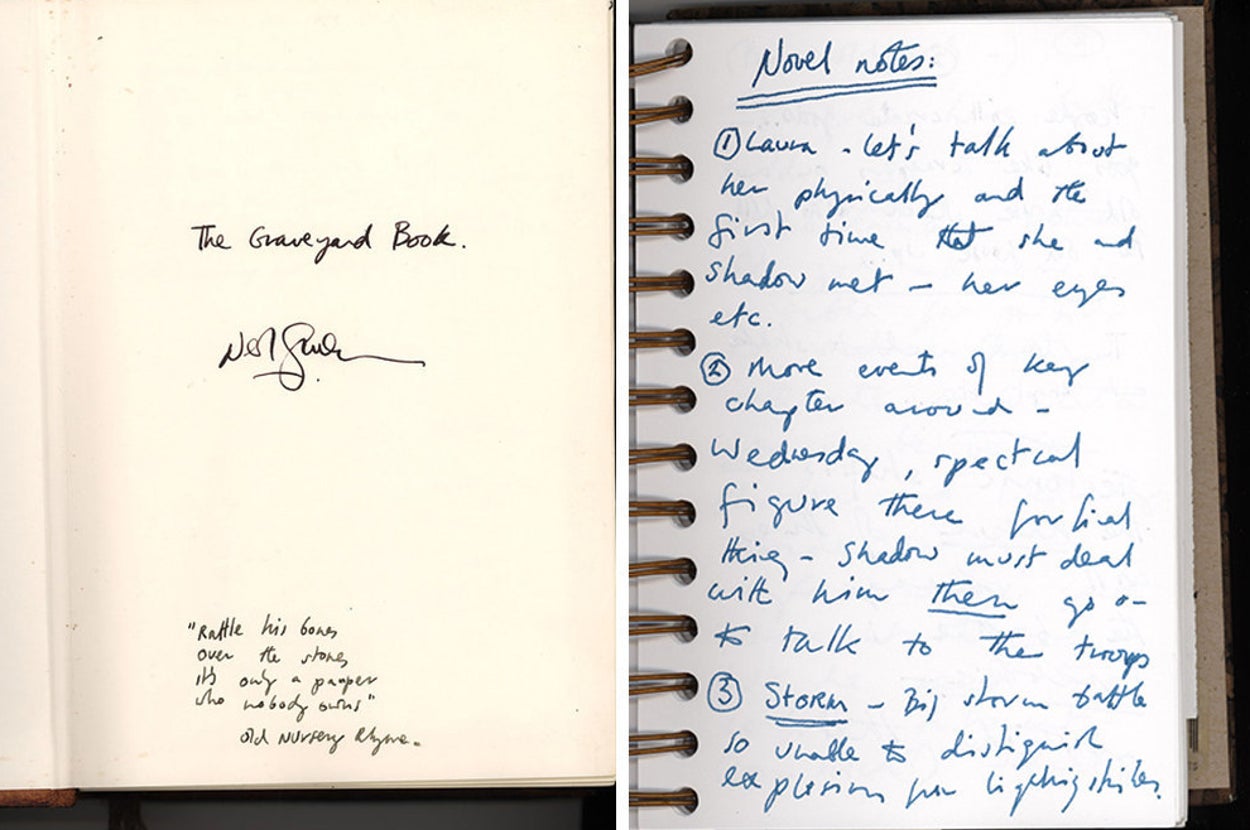 The Graveyard Book.
Neil Gaiman
"Rattle his bones
over the stones
it's only a pauper
who nobody owns"
old Nursery Rhyme.
Novel notes:
① Laura - let's talk about
her physically and the
first time that she and
Shadow met - her eyes
etc.
② More events of key
chapter around -
Wednesday, spectral
figure there for final
thing - Shadow must deal
with him then go on
to talk to the troops
③ STORM - Big storm battle
so unable to distinguish
explosions from lightning strikes.